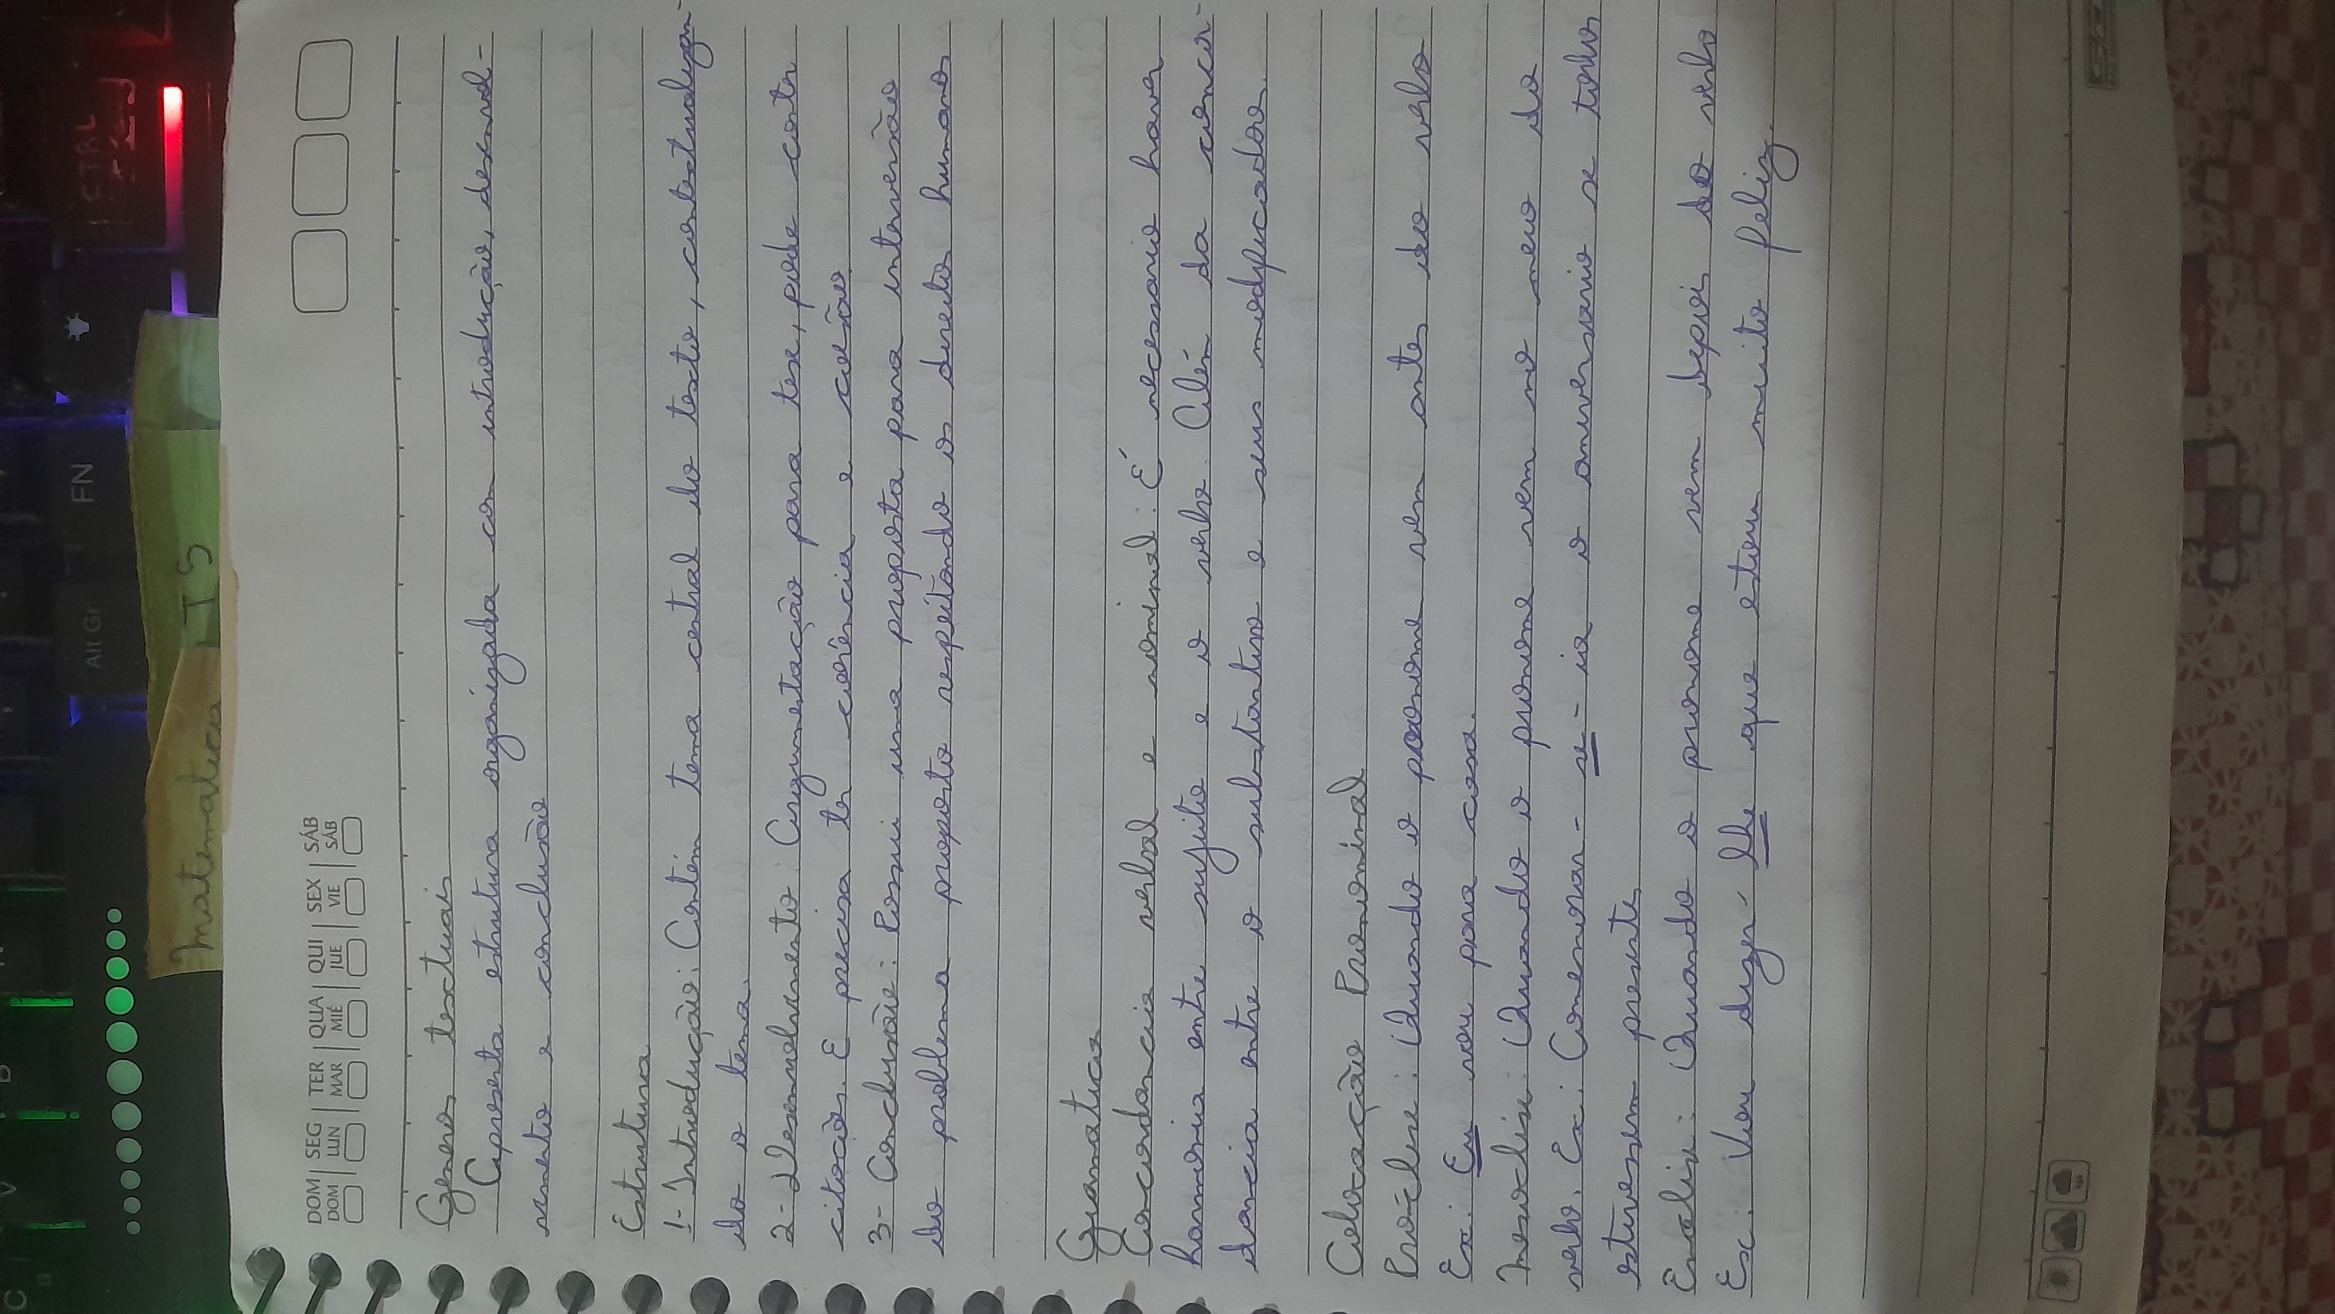 C V B
Alt Gr FN CTRL
Matematica TS
DOM SEG TER QUA QUI SEX SÁB
DOM LUN MAR MIÉ JUE VIE SÁB
Generos textuais
Apresenta estrutura organizada com introdução, desenvol-
vimento e conclusão
Estrutura
1- Introdução: Contém tema central do texto, contextualizan-
do o tema.
2- Desenvolvimento: Argumentação para tese, pode conter
citações. E precisa ter coerência e coesão.
3- Conclusão: Possui uma proposta para interversão
do problema proposto respeitando os direitos humanos
Gramatica
Concordancia verbal e nominal: É necessario haver
harmonia entre sujeito e o verbo. Além da concor-
dancia entre o substantivo e seus modificadores.
Colocação Pronominal
Pró-clise: Quando o pronome vem antes do verbo
Ex: Eu vou para casa.
Mesoclise: Quando o pronome vem no meio do
verbo. Ex: Comemorar-se-ia o aniversario se todos
estivessem presentes
Enclise: Quando o pronome vem depois do verbo
Ex: Vou dizer-lhe que estou muito feliz.